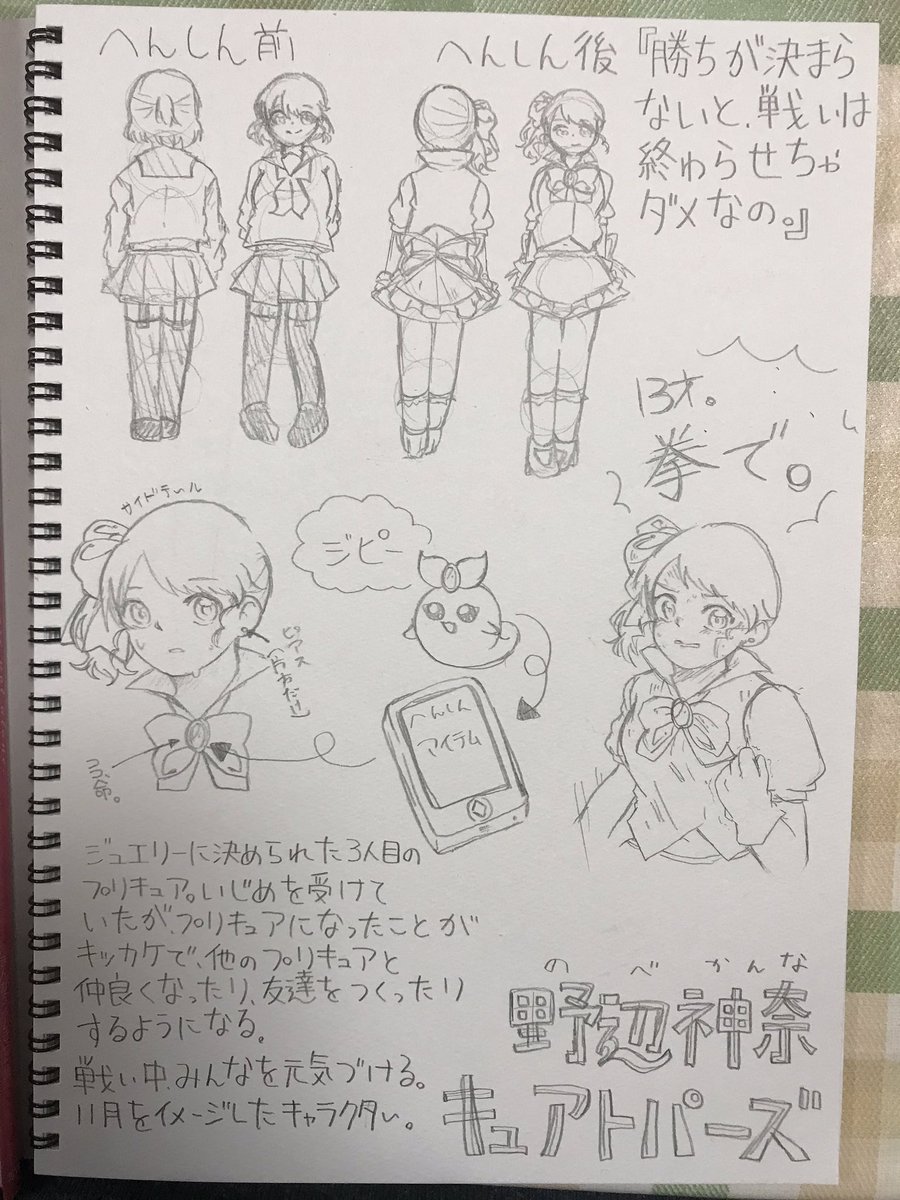 へんしん前
へんしん後
『勝ちが決まら
ないと、戦いは
終わらせちゃ
ダメなの。』
13才。
拳で。
サイドテぃル
ジピー
ピアス
(片方だけ)
へんしん
アイテム
ココ、命。
ジュエリーに決められた3人目の
プリキュア。いじめを受けて
いたが、プリキュアになったことが
キッカケで、他のプリキュアと
仲良くなったり、友達をつくったり
するようになる。
戦い中、みんなを元気づける。
11月をイメージしたキャラクター。
のべかんな
野辺神奈
キュアトパーズ